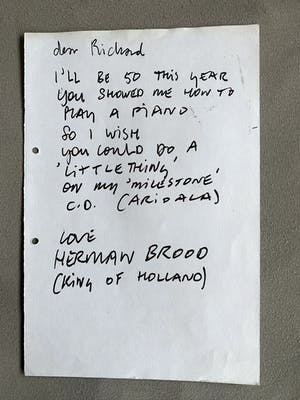 dear Richard
I'LL BE 50 THIS YEAR
YOU SHOWED ME HOW TO
PLAY A PIANO
SO I WISH
YOU COULD DO A
'LITTLE THING'
ON MY 'MILESTONE'
C.D. (ARIOALA)
LOVE
HERMAN BROOD
(KING OF HOLLAND)